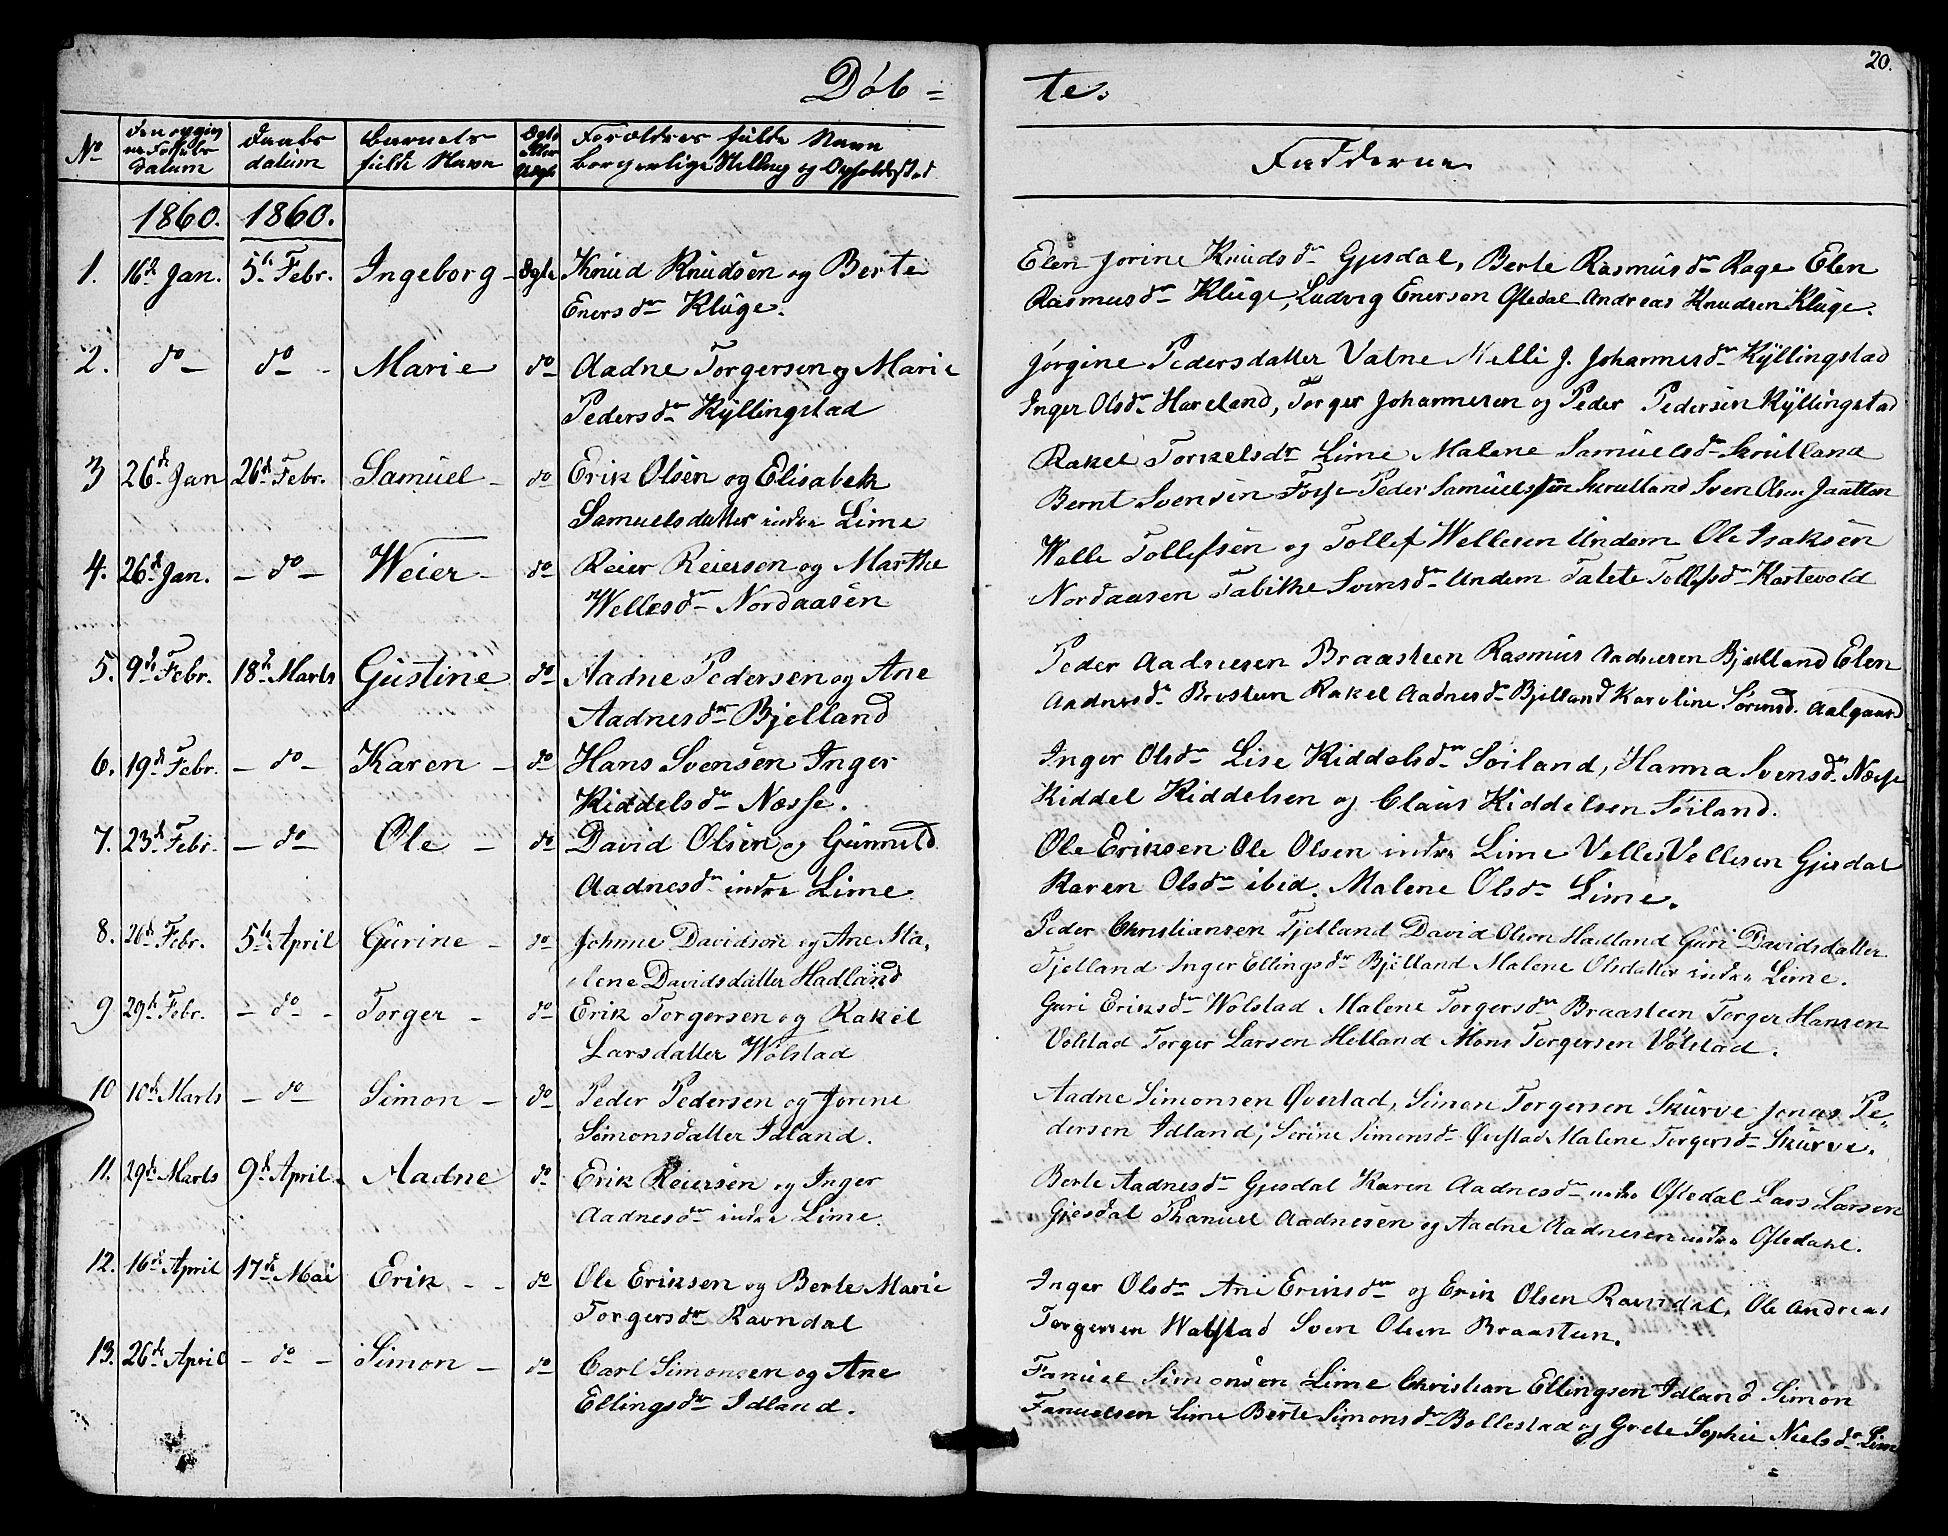 20.
Døb = tes
No
Daabs datum
Barnets fulde Navn
Ægte eller Uægte
Forældres fulde Navn
borgerlige Stilling og Opholdssted
Fadderne
1860. 1860.
1. 16d Jan. 5te Febr. Ingeborg - Ægte Knud Knudsen og Berte
Enersdr Kluge.
Elen Jorine Knudsdr Gjesdal, Berte Rasmusdr Rage Elen
Rasmusdr Kluge, Ludvig Enersen Ofledal Andreas Knudsen Kluge.
2. do - do - Marie do Aadne Torgersen og Marie
Pedersdr Kyllingstad
Jørgine Pedersdatter Vatne Melli J. Johannesdr Kyllingstad
Inger Olsdr Hareland, Torger Johannesen og Peder Pedersen Kyllingstad
3 26d Jan 26d Febr. Samuel - do Erik Olsen og Elisabeth
Samuelsdatter indre Lime
Rakel Torkelsdr Lime Malene Samuelsdr Skurtland
Bernt Svensen Fosse Peder Samuelsen Skurtland Sven Olsen Jaatten
4. 26d Jan. - do - Weier - do Reier Reiersen og Marthe
Wellesdr Nordaasen
Welle Tollefsen og Tollef Wellesen Undem Ole Isaksen
Nordaasen Tabithe Svensdr Undem Talete Tollefsdr Kartevold
5. 9d Febr. 18d Marts Gustine do Aadne Pedersen og Ane
Aadnesdr Bjelland
Peder Aadnesen Braasteen Rasmus Aadnesen Bjelland Elen
Aadnesdr Bresteen Rakel Aadnesdr Bjelland Karoline Sørensd. Aalgaard
6. 19d Febr. - do - Karen - do Hans Svensen Inger
Kiddelsdr Næsse.
Inger Olsdr Lise Kiddelsdr Søiland, Hanna Svensdr Næsse
Kiddel Kiddelsen og Claus Kiddelsen Søiland.
7. 23d Febr. - do - Ole - do David Olsen og Gunnild
Aadnesdr indre Lime
Ole Eriksen Ole Olsen indre Lime Velles Vellesen Gjesdal
Karen Olsdr ibid. Malene Olsdr Lime.
8. 26d Febr. 5te April Gurine - do Johnne Davidson og Ane Ma,
lene Davidsdatter Hadland
Peder Christiansen Fjelland David Olson Hadland Guri Davidsdatter
Fjelland Inger Ellingsdr Bjelland Malene Olsdatter indre Lime.
9 29d Febr. - do - Torger - do Erik Torgersen og Rakel
Larsdatter Wølstad
Guri Eriksdr Wolstad Malene Torgersdr Braasteen Torger Hansen
Volstad Torger Larsen Helland Mons Torgersen Vølstad.
10 10d Marts - do Simon - do Peder Pedersen og Jorine
Simonsdatter Idland.
Aadne Simonsen Øvestad, Simon Torgersen Skurve Jonas Pe-
dersen Idland, Serine Simonsdr Øvestad Malene Torgersdr Skurve.
11. 29d Marts 9d April. Aadne do Erik Reiersen og Inger
Aadnesdr indre Lime.
Berte Aadnesdr Gjesdal Karen Aadnesdr indre Ofledal Lars Larsen
Gjesdal Phanuel Aadnesen og Aadne Aadnesen indre Ofledahl.
12. 16d April 17d Mai Erik - - do Ole Eriksen og Berte Marie
Torgersdr Ravndal
Inger Olsdr Ane Eriksdr og Erik Olsen Ravndal, Ole Andreas
Torgersen Wolstad Sven Olsen Braasteen.
13. 26d April - do - Simon - do Carl Simonsen og Ane
Ellingsdr Idland.
Fanuel Simonsen Lime Christian Ellingsen Idland Simon
Fanuelsen Lime Berte Simonsdr Bollestad og Grete Sophie Nielsdr Lime